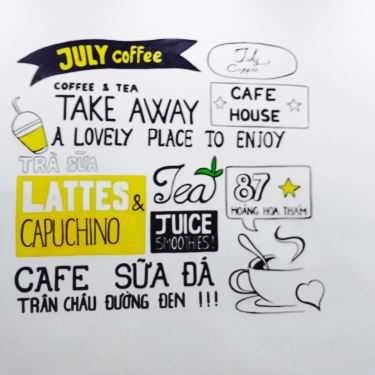 JULY coffee
July
Coffee
COFFEE & TEA
TAKE AWAY
CAFE
HOUSE
A LOVELY PLACE TO ENJOY
TRÀ SỮA
LATTES &
CAPUCHINO
Tea
JUICE
SMOOTHIES!
87
HOÀNG HOA THÁM
CAFE SỮA ĐÁ
TRÂN CHÂU ĐƯỜNG ĐEN !!!